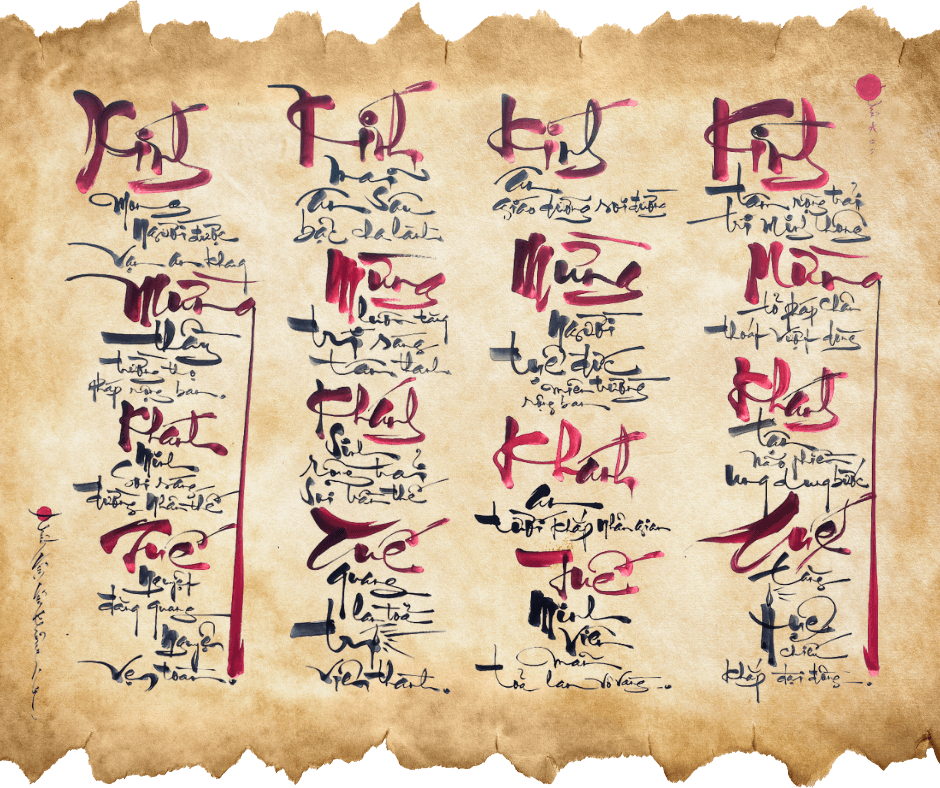 Kính
Mong
Người được
Vạn an khang
Mừng
thầy
trường thọ
khắp rộng ban.
Khánh
Minh
Soi sáng
đường nhân thế
Tuế
Nguyệt
đăng quang
Nguyện
vẹn toàn.
Kính
Ân sâu
bậc cha lành.
Mừng
luôn tăng
trí sáng
tâm thanh.
Khánh
Sinh
rộng trải
soi trần thế
Tuế
quang
lan toả
trí
viên thành.
Kính
ân
giáo dưỡng soi đường
Mừng
Người
tuệ đức
miên trường
rộng ban
Khánh
an
tươi khắp nhân gian
Tuế
Minh
Viên
mãn
toả lan
Kính
tâm rộng trải
trí Minh thông
Mừng
tỏ pháp chân
thoát vượt dòng
Khánh
tan
não phiền
ung dung bước
Tuế
tăng
tuệ
chiếu
khắp đại đồng.